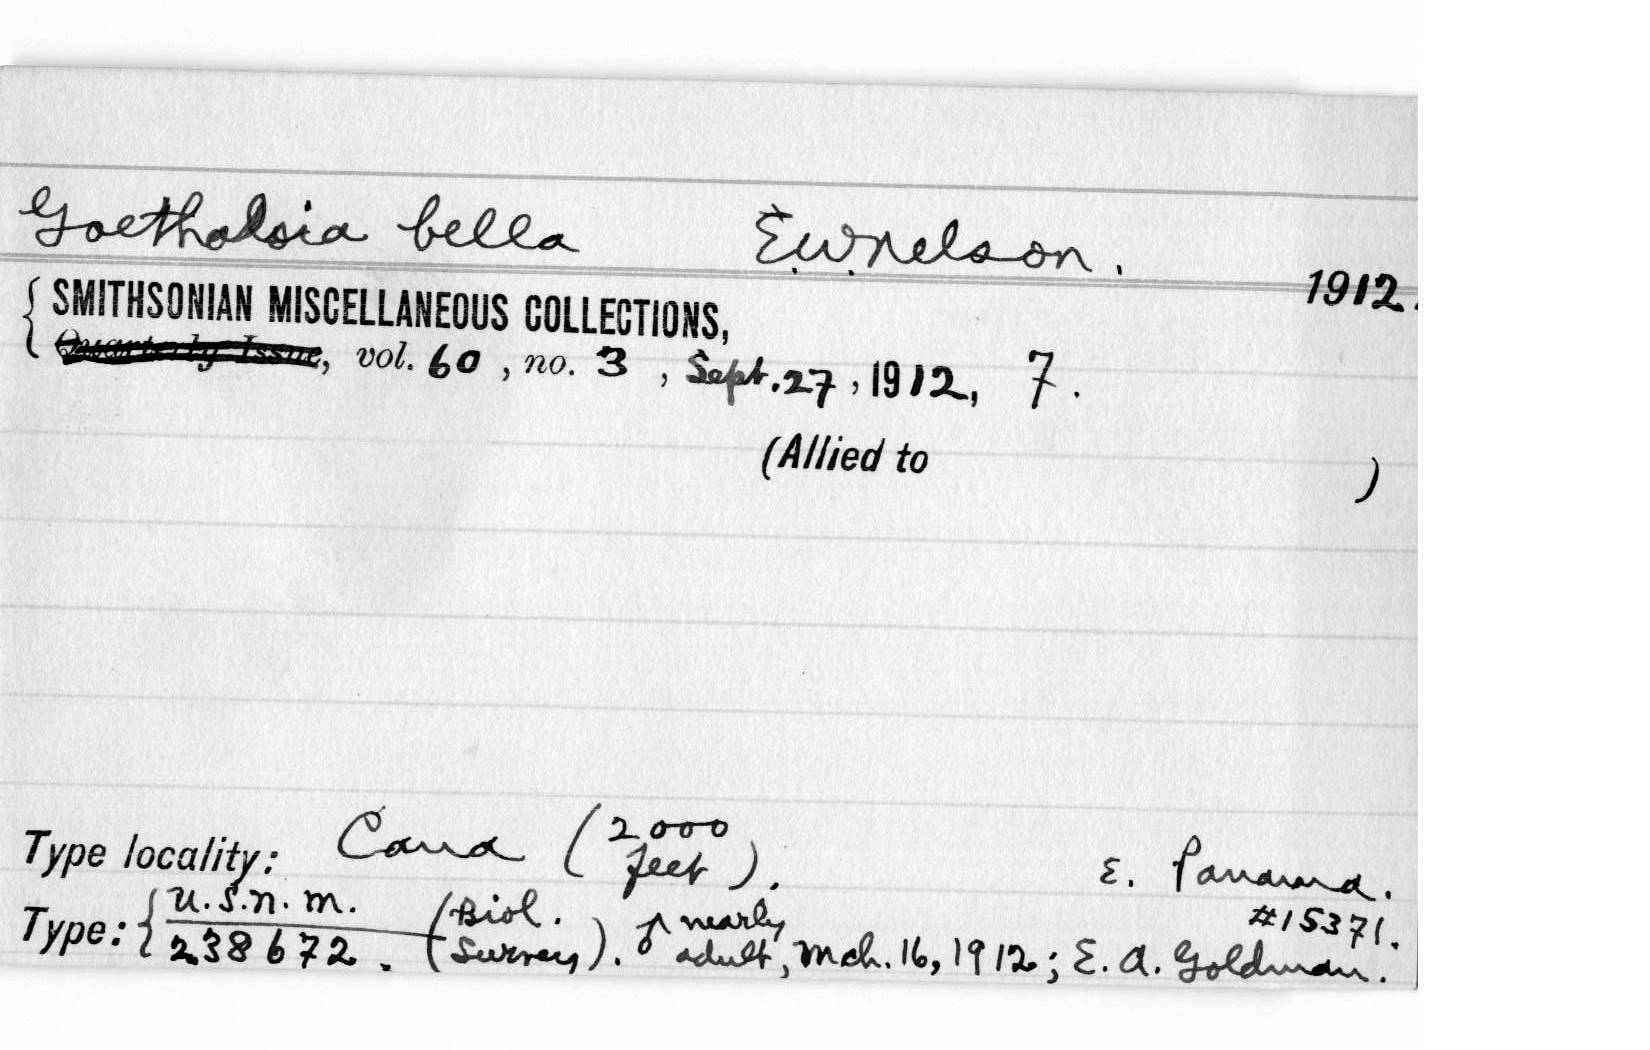 Goethalsia bella E.W. Nelson. 1912.
{ SMITHSONIAN MISCELLANEOUS COLLECTIONS,
Quarterly Issue, vol. 60, no. 3, Sept. 27, 1912, 7.
(Allied to )
Type locality: Cana (2000 feet). E. Panama.
Type: { U.S.N.M. 238672. (Biol. Survey). ♂ nearly adult, Mch. 16, 1912; E. A. Goldman. #15371.